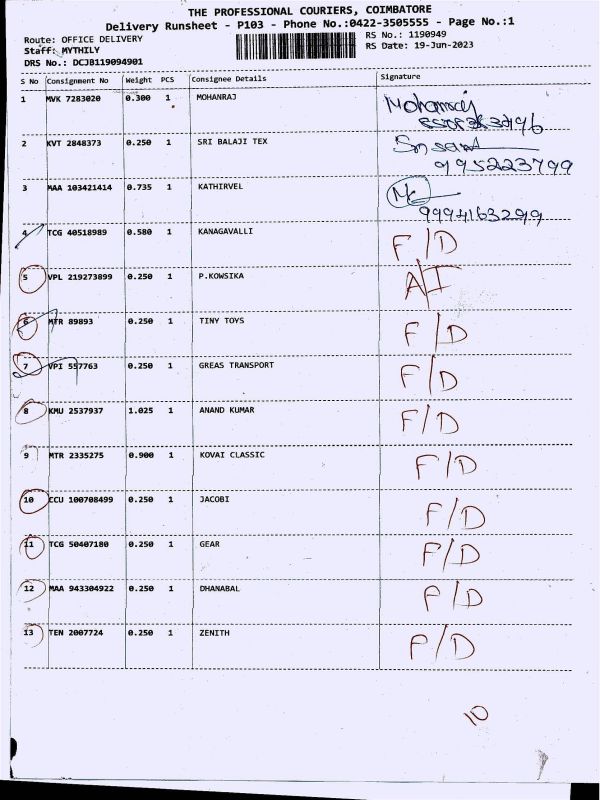 THE PROFESSIONAL COURIERS, COIMBATORE
Delivery Runsheet - P103 - Phone No.:0422-3505555 - Page No.:1
Route: OFFICE DELIVERY RS No.: 1190949
Staff: MYTHILY RS Date: 19-Jun-2023
DRS No.: DCJB119094901
S No Consignment No Weight PCS Consignee Details Signature
1 MVK 7283020 0.300 1 MOHANRAJ Mohanraj
2 KVT 2848373 0.250 1 SRI BALAJI TEX
995223799
3 MAA 103421414 0.735 1 KATHIRVEL
9994163299
4 TCG 40518989 0.580 1 KANAGAVALLI F/D
5 VPL 219273899 0.250 1 P.KOWSIKA A/I
6 MTR 89893 0.250 1 TINY TOYS F/D
7 VPI 557763 0.250 1 GREAS TRANSPORT F/D
8 KMU 2537937 1.025 1 ANAND KUMAR F/D
9 MTR 2335275 0.900 1 KOVAI CLASSIC F/D
10 CCU 100708499 0.250 1 JACOBI F/D
11 TCG 50407180 0.250 1 GEAR F/D
12 MAA 943304922 0.250 1 DHANABAL F/D
13 TEN 2007724 0.250 1 ZENITH F/D
10